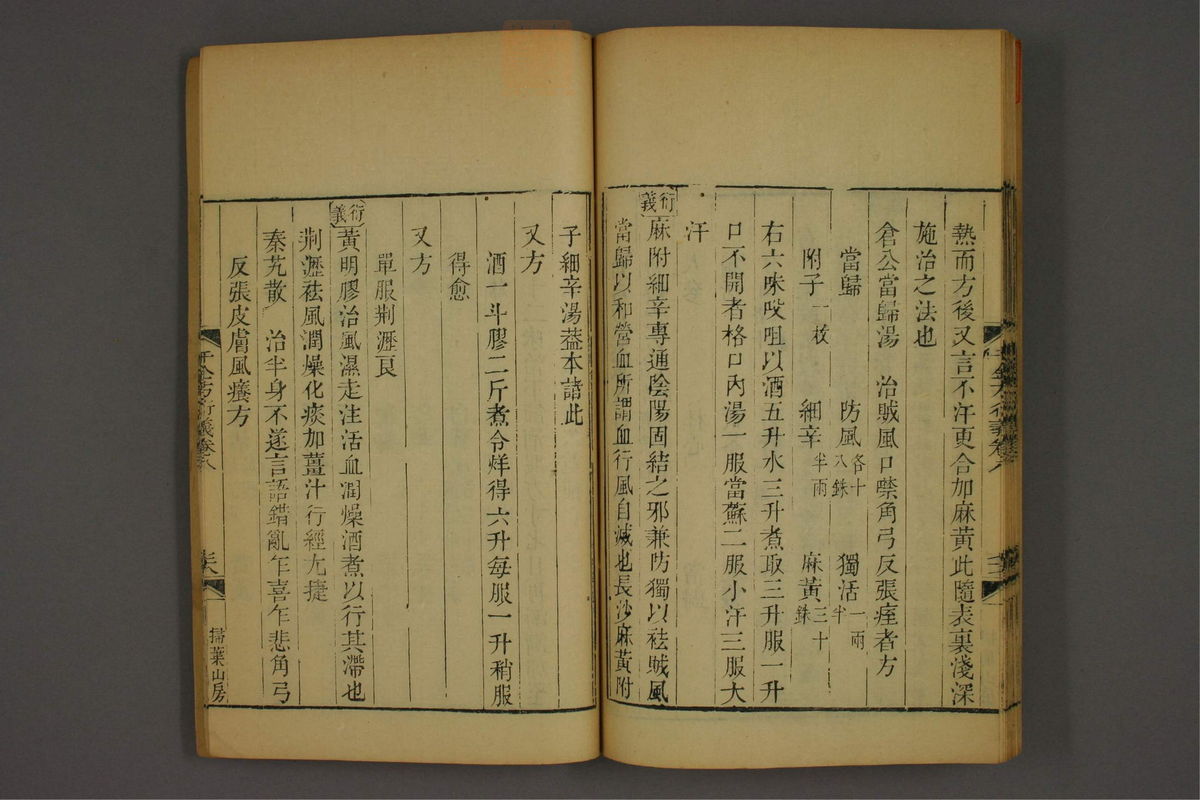 熱而方後又言不汗更合加麻黃此隨表裏淺深
施治之法也
倉公當歸湯　治賊風口噤角弓反張痓者方
當歸　防風各十八銖　獨活一兩半
附子一枚　細辛半兩　麻黃三十銖
右六味㕮咀以酒五升水三升煮取三升服一升
口不開者格口內湯一服當蘇二服小汗三服大
汗
衍義 麻附細辛專通陰陽固結之邪兼防獨以祛賊風
當歸以和營血所謂血行風自滅也長沙麻黃附
子細辛湯葢本諸此
又方
酒一斗膠二斤煮令烊得六升每服一升稍服
得愈
又方
單服荆瀝良
衍義 黃明膠治風濕走注活血潤燥酒煮以行其滯也
荆瀝祛風潤燥化痰加薑汁行經尤捷
秦艽散　治半身不遂言語錯亂乍喜乍悲角弓
反張皮膚風癢方
千金方衍義卷八
掃葉山房